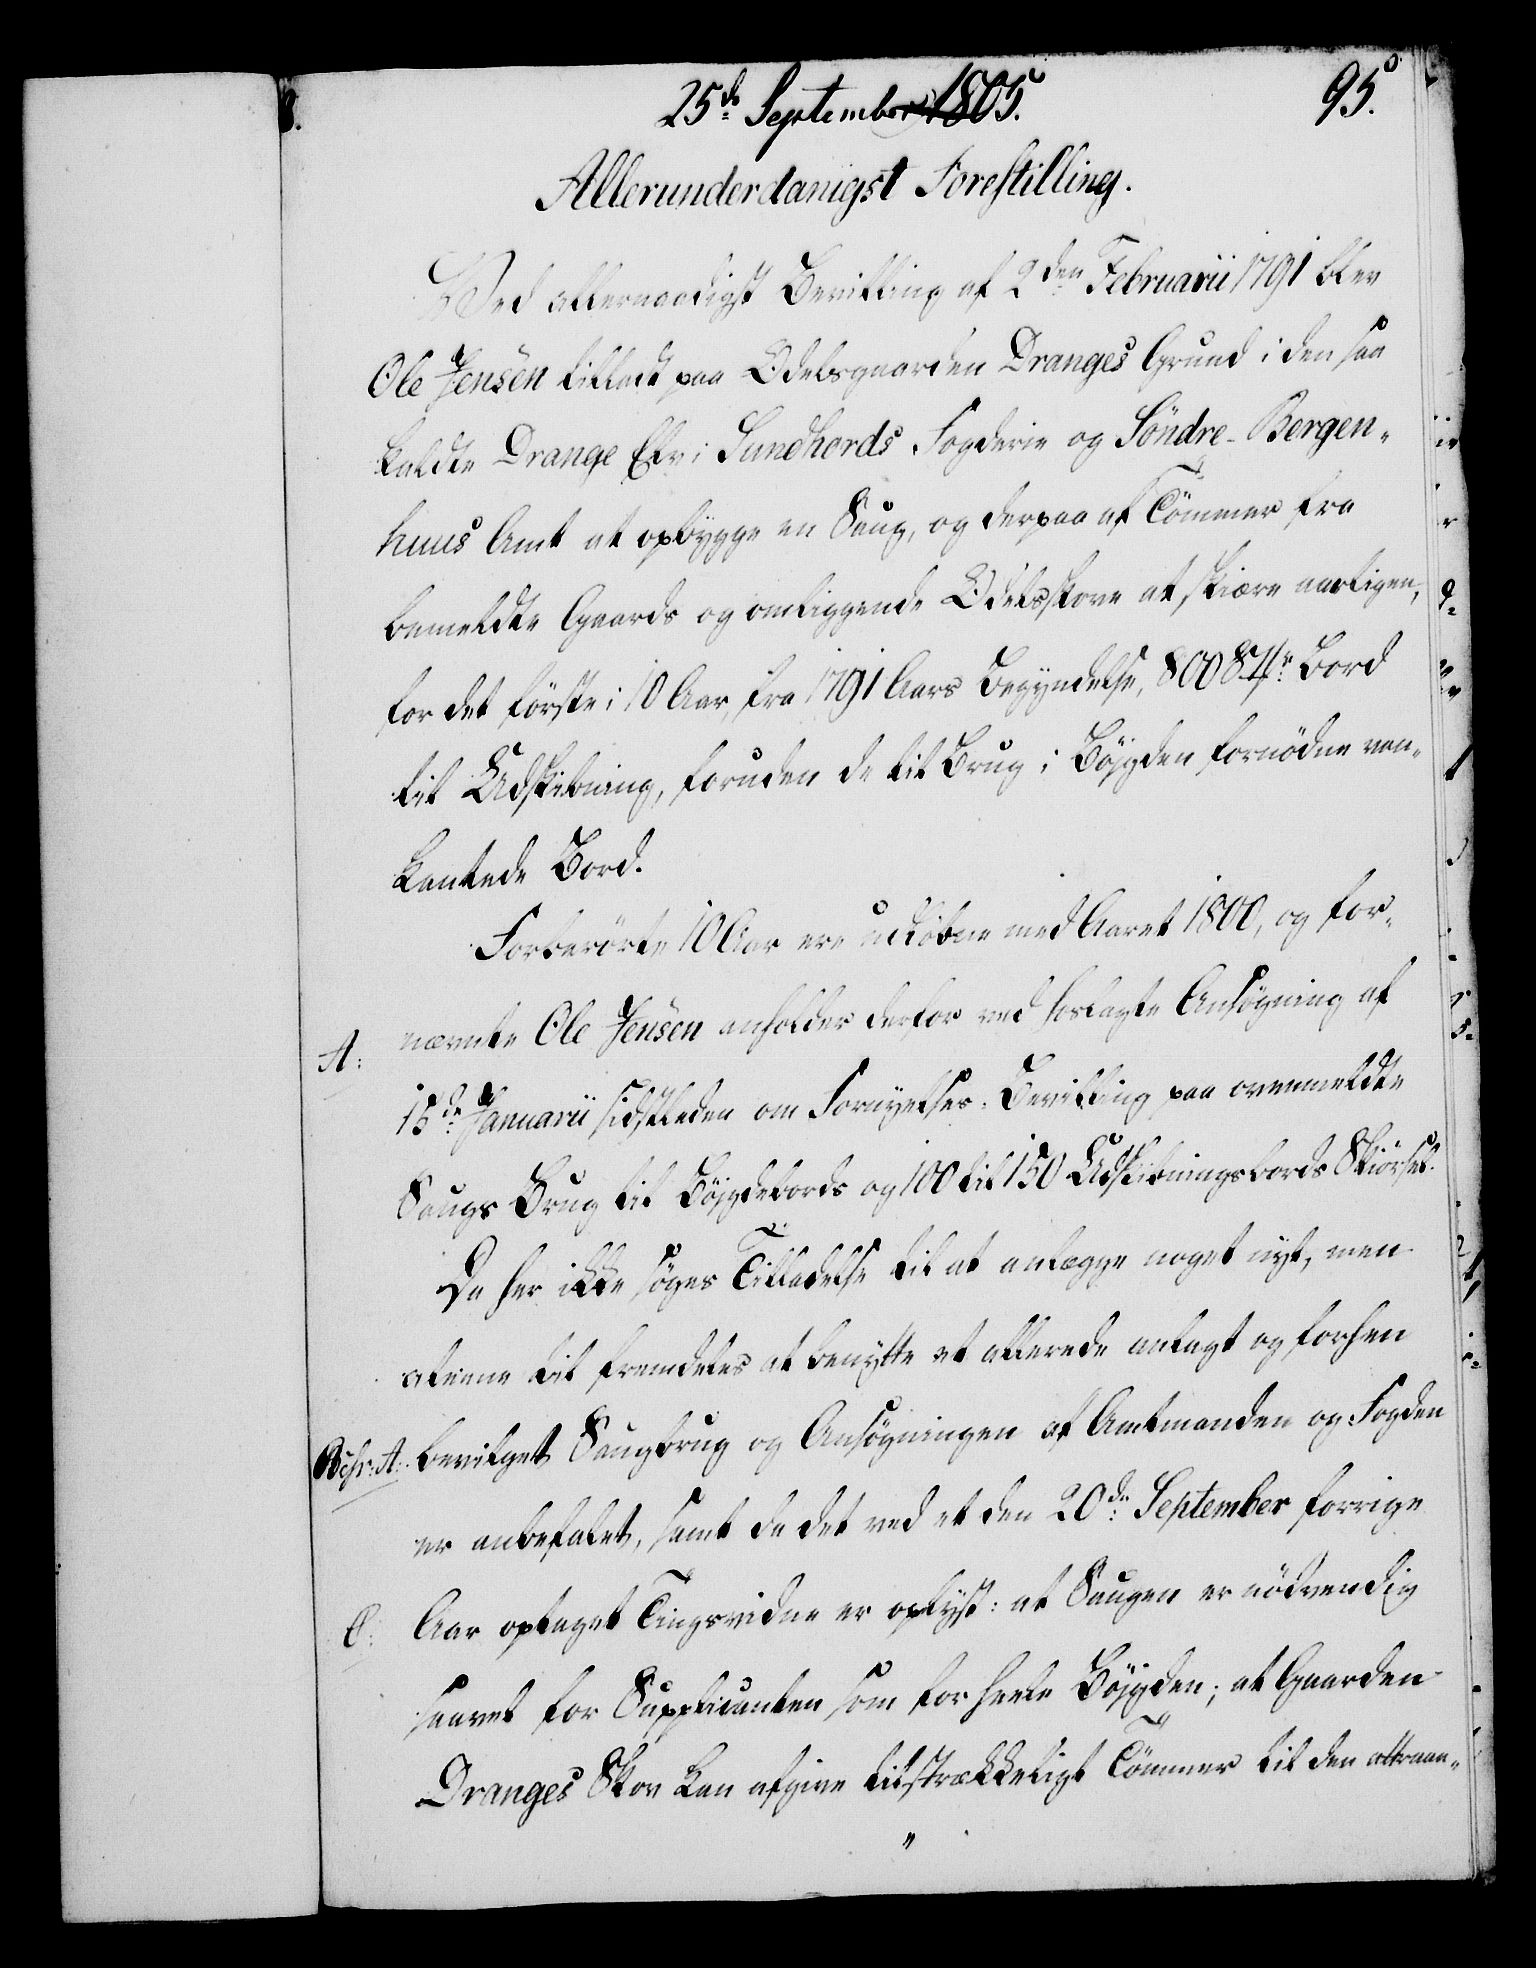 25de September 1805.
95.
Allerunderdanigst Forestilling.
Ved allernaadigst Bevilling af 2den Februarii 1791 blev
Ole Jensen tilladt paa Odelsgaarden Dranges Grund i den saa
kaldte Drange Elv i Sundhords Fogderie og Söndre-Bergen-
huus Amt at opbygge en Saug, og derpaa af Tömmer fra
bemeldte Gaards og omliggende Odelsskove at skiære aarligen,
for det förste i 10 Aar, fra 1791 Aars Begyndelse, 800 Bord
til Udskibning, foruden de til Brug i Böjgden fornödne van-
kantede Bord.
Forberörte 10 Aar ere udlöbne med Aaret 1800, og for-
A:
nævnte Ole Jensen anholder derfor ved hoslagte Ansögning af
15de Januarii sidstleden om Fornyelses-Bevilling paa ovenmeldte
Saugs Brug til Böjgdebords og 100 til 150 Udskibningsbords Skiörsel.
Da her ikke söges Tilladelse til at anlægge noget nyt, men
alene til fremdeles at benytte et allerede anlagt og forhen
bevilget Saugbrug og Ansögningen af Amtmanden og Fogden
er anbefalet, samt da det ved et den 20de September forrige
C:
Aar optaget Tingsvidne er oplyst: at Saugen er nödvendig
saavel for Supplicanten som for heele Böjgden; at Gaarden
Dranges Skov kan afgive tilstrækkeligt Tömmer til den attraa-
"